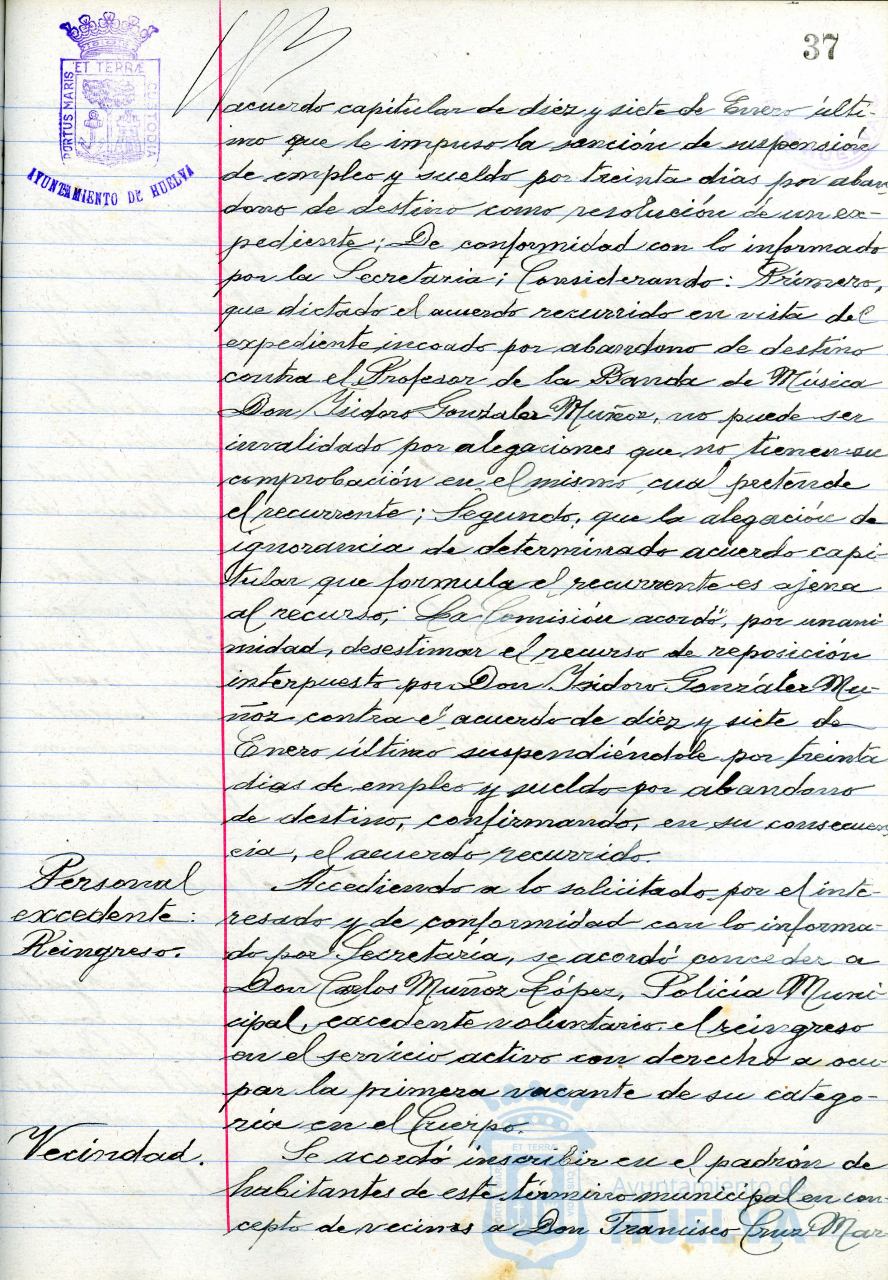 37
ET TERRÆ
PORTUS MARIS
CUSTODIA
AYUNTAMIENTO DE HUELVA
acuerdo capitular de diez y siete de Enero últi-
mo que le impuso la sanción de suspensión
de empleo y sueldo por treinta dias por aban
dono de destino como resolución de un ex-
pediente; De conformidad con lo informado
por la Secretaria; Considerando: Primero,
que dictado el acuerdo recurrido en vista del
expediente incoado por abandono de destino
contra el Profesor de la Banda de Música
Don Isidoro Gonzalez Muñoz, no puede ser
invalidado por alegaciones que no tienen su
comprobación en el mismo cual pretende
el recurrente; Segundo, que la alegación de
ignorancia de determinado acuerdo capi-
tular que formula el recurrente es ajena
al recurso; La Comisión acordó, por unani
midad, desestimar el recurso de reposición
interpuesto por Don Isidoro González Mu-
ñoz contra el acuerdo de diez y siete de
Enero último suspendiéndole por treinta
dias de empleo y sueldo por abandono
de destino, confirmando, en su consecuen
cia, el acuerdo recurrido.
Personal
excedente:
Reingreso.
Accediendo a lo solicitado por el inte-
resado y de conformidad con lo informa-
do por Secretaría, se acordó conceder a
Don Carlos Muñoz López, Policía Muni-
cipal, excedente voluntario, el reingreso
en el servicio activo con derecho a ocu
par la primera vacante de su catego-
ría en el Cuerpo.
Vecindad.
Se acordó inscribir en el padrón de
habitantes de este término municipal en con-
cepto de vecinos a Don Francisco Cruz Mar
Ayuntamiento de
HUELVA